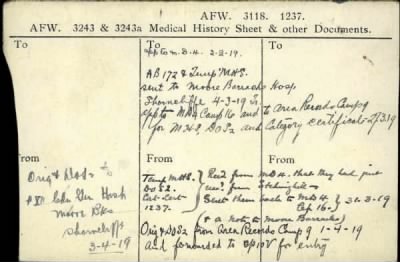 AFW. 3118. 1237.
AFW. 3243 & 3243a Medical History Sheet & other Documents.
To
To
To
app to M.D.4. 2-3-19.
AB 172 & Temp MHS.
sent to Moore Barracks Hosp
Shorncliffe 4-3-19
app to MD4 Camp 16 and to Area Records Camp 9
for M.H.S, DOSs and Category certificate
From
From
From
Orig & Dosts to
#XI Can Gen Hosp
Moore Bks
Shorncliffe
3-4-19
Temp MHS.
DOS 2.
Cat-Cert
1237.
Recd from MD4. that they had just
from
Sent them back to MD4
31-3-19
(& a note to Moore Barracks)
Orig & DOS2 from Area Records Camp 9 1-4-19
and forwarded to for entry